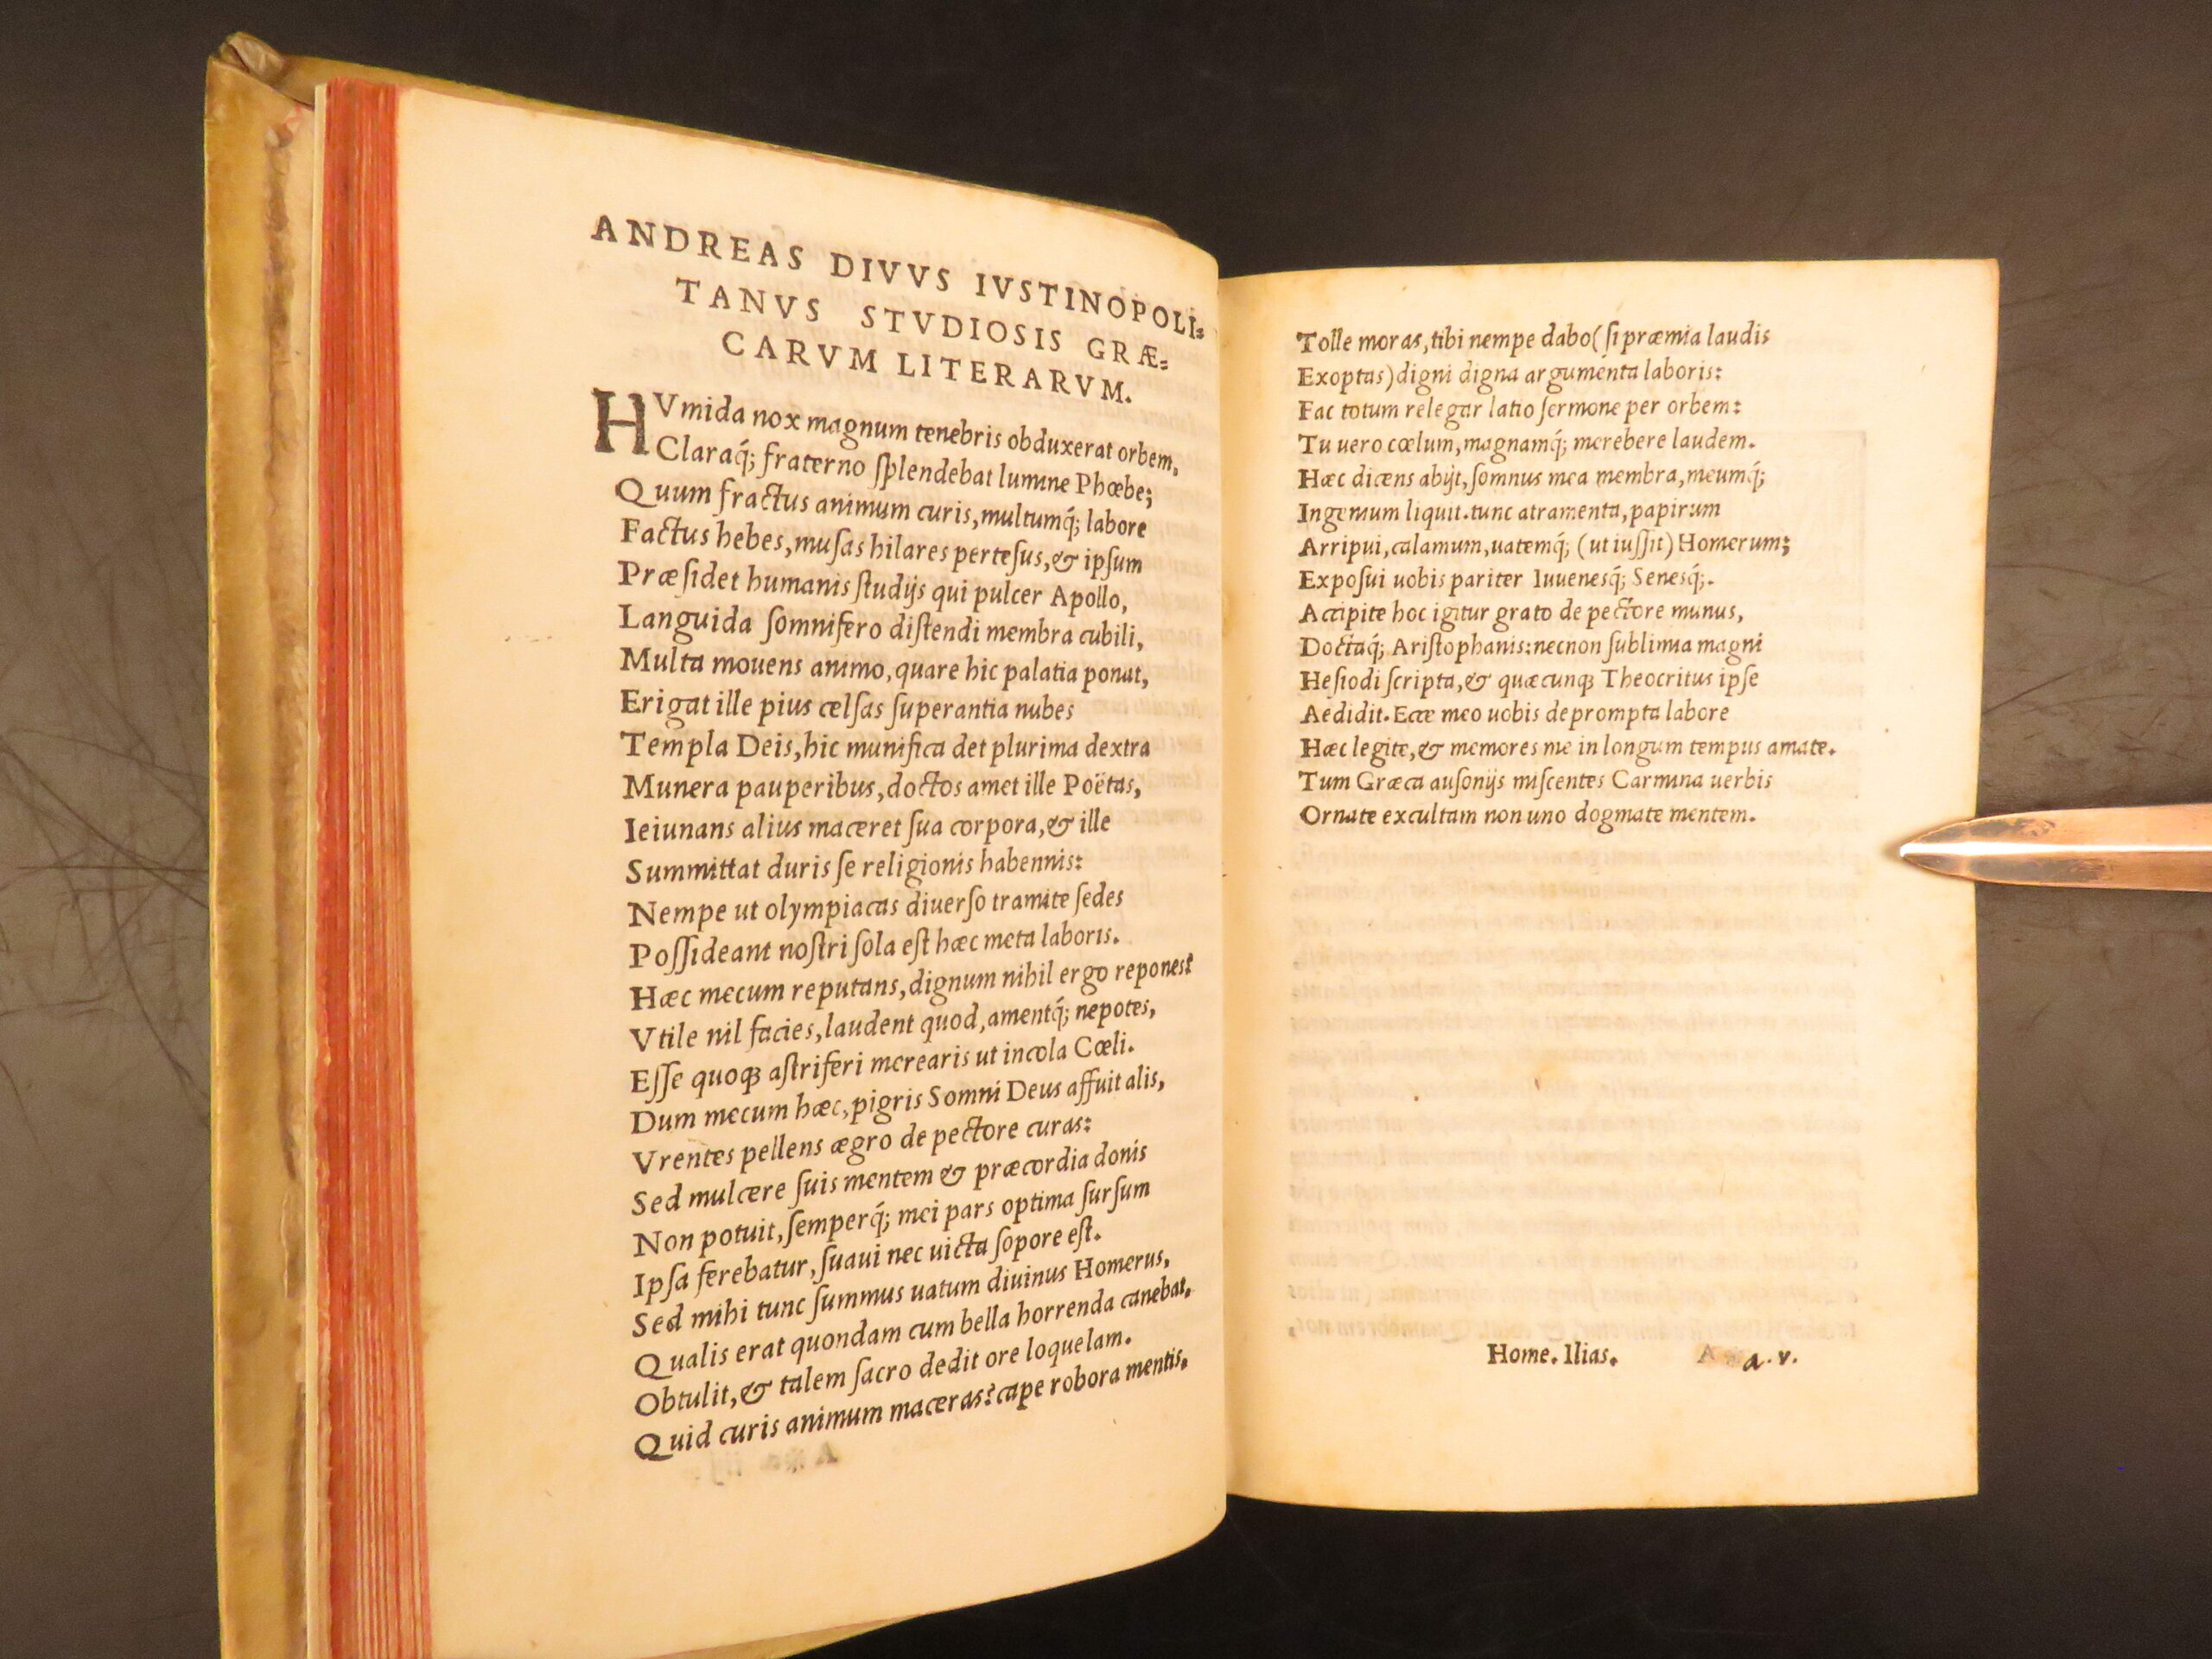 ANDREAS DIVVS IVSTINOPOLI=
TANVS STVDIOSIS GRÆ=
CARVM LITERARVM.
HVmida nox magnum tenebris obduxerat orbem,
Claraq́; fraterno ſplendebat lumine Phœbe;
Quum fractus animum curis, multumq́; labore
Factus hebes, muſas hilares perteſus, & ipſum
Præſidet humanis ſtudijs qui pulcer Apollo,
Languida ſomnifero diſtendi membra cubili,
Multa mouens animo, quare hic palatia ponat,
Erigat ille pius celſas ſuperantia nubes
Templa Deis, hic munifica det plurima dextra
Munera pauperibus, doctos amet ille Poëtas,
Ieiunans alius maceret ſua corpora, & ille
Summittat duris ſe religionis habennis:
Nempe ut olympiacas diuerſo tramite ſedes
Poſſideant noſtri ſola eſt hæc meta laboris.
Hæc mecum reputans, dignum nihil ergo repones?
Vtile nil facies, laudent quod, amentq́; nepotes,
Eſſe quoqꝫ aſtriferi merearis ut incola Cœli.
Dum mecum hæc, pigris Somni Deus affuit alis,
Vrentes pellens ægro de pectore curas:
Sed mulcere ſuis mentem & præcordia donis
Non potuit, ſemperq́; mei pars optima ſurſum
Ipſa ferebatur, ſuaui nec uicta ſopore eſt.
Sed mihi tunc ſummus uatum diuinus Homerus,
Qualis erat quondam cum bella horrenda canebat,
Obtulit, & talem ſacro dedit ore loquelam.
Quid curis animum maceras? cape robora mentis,
Tolle moras, tibi nempe dabo (ſi præmia laudis
Exoptas) digni digna argumenta laboris:
Fac totum relegar latio ſermone per orbem:
Tu uero cœlum, magnamq́; merebere laudem.
Hæc dicens abijt, ſomnus mea membra, meumq́;
Ingenium liquit. tunc atramenta, papirum
Arripui, calamum, uatemq́; (ut iuſſit) Homerum;
Expoſui uobis pariter Iuuenesq́; Senesq́;.
Accipite hoc igitur grato de pectore munus,
Doctaq́; Ariſtophanis: necnon ſublimia magni
Heſiodi ſcripta, & quæcunqꝫ Theocritus ipſe
Aedidit. Ecce meo uobis deprompta labore
Hæc legite, & memores me in longum tempus amate.
Tum Græca auſonijs miſcentes Carmina uerbis
Ornate excultam non uno dogmate mentem.
Home. Ilias. a. v.